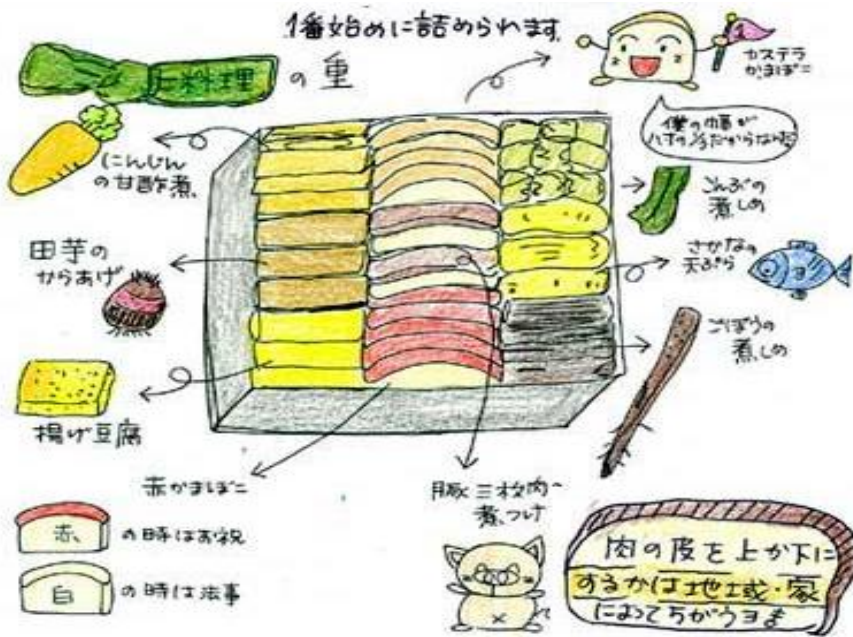 1番始めに詰められます
料理の重
カステラ
かまぼこ
僕の幅が
だからなんだ
にんじん
の甘酢煮
こんぶの
煮しめ
田芋の
からあげ
さかなの
天ぷら
ごぼうの
煮しめ
揚げ豆腐
赤かまぼこ
豚三枚肉
煮つけ
赤
の時はお祝
白
の時は法事
肉の皮を上か下に
するかは地域・家
によってちがうヨ